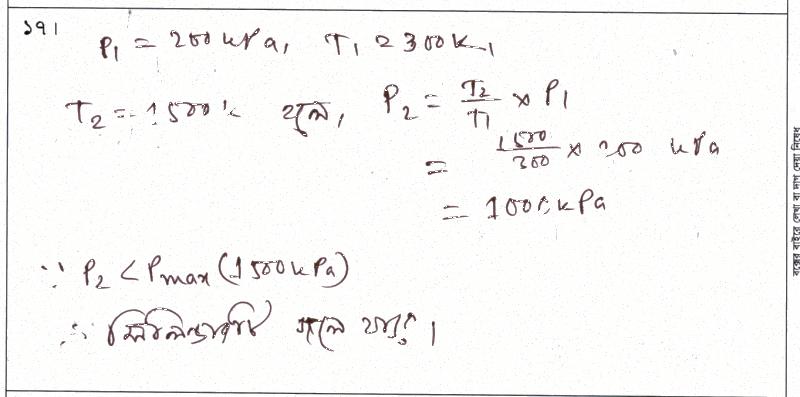 ১৭।
P₁ = 200 kPa, T₁ = 300K,
T₂ = 1500 K হলে, P₂ = T₂/T₁ × P₁
= 1500/300 × 200 kPa
= 1000 kPa
∵ P₂ < Pmax (1500 kPa)
∴ সিলিন্ডারটি গলে যাবে।
বক্সের বাইরে লেখা বা দাগ দেয়া নিষেধ